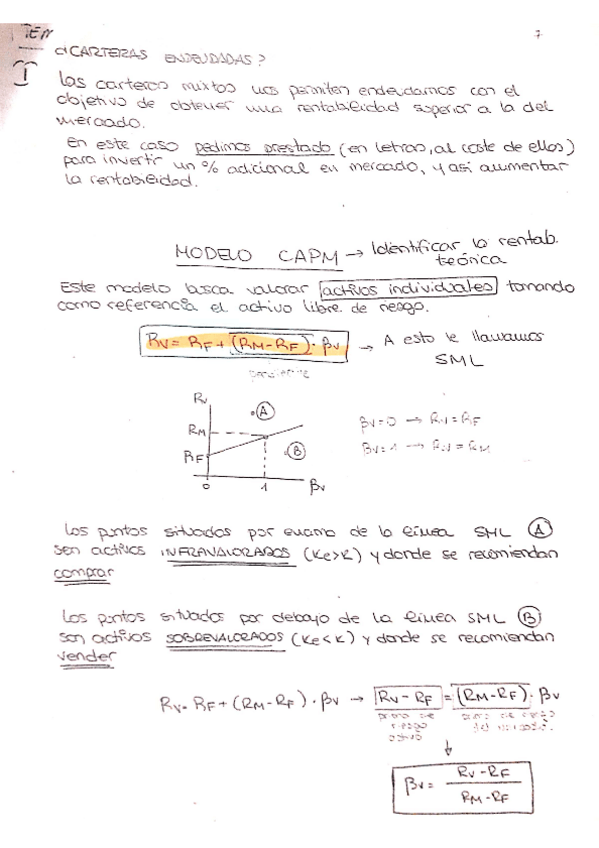 7
¿CARTERAS ENDEUDADAS?
Las carteras mixtas nos permiten endeudarnos con el
objetivo de obtener una rentabilidad superior a la del
mercado.
En este caso pedimos prestado (en letras, al coste de ellos)
para invertir un % adicional en mercado, y así aumentar
la rentabilidad.
MODELO CAPM → Identificar la rentab.
teórica
Este modelo busca valorar activos individuales tomando
como referencia el activo libre de riesgo.
RV = RF + (RM - RF) · βV → A esto le llamamos
SML
pendiente
RV
A
RM
RF
B
0 1 βV
βV = 0 → RV = RF
βV = 1 → RV = RM
Los puntos situados por encima de la línea SML A
sen activos INFRAVALORADOS (Ke>K) y donde se recomiendan
comprar
Los puntos situados por debajo de la línea SML B
son activos SOBREVALORADOS (Ke<K) y donde se recomiendan
vender
RV = RF + (RM - RF) · βV → RV - RF = (RM - RF) · βV
prima de riesgo activo
prima de riesgo del mercado
βV = RV - RF / RM - RF